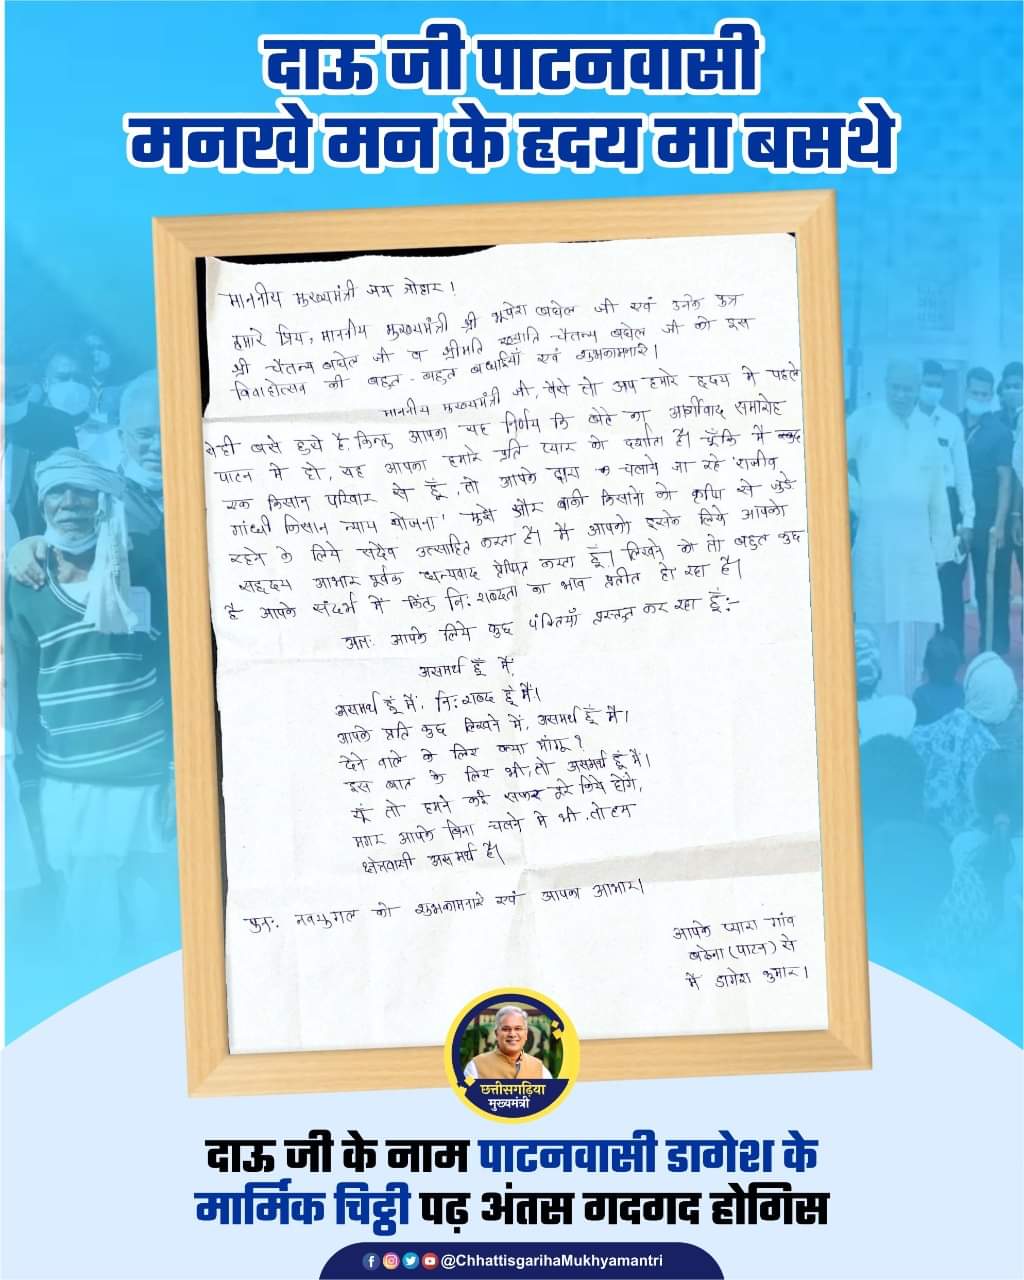 दाऊ जी पाटनवासी
मनखे मन के हृदय मा बसथे
माननीय मुख्यमंत्री जय जोहार!
हमारे प्रिय, माननीय मुख्यमंत्री श्री भूपेश बघेल जी एवं उनके पुत्र
श्री चैतन्य बघेल जी व श्रीमति ख्याति चैतन्य बघेल जी को इस
विवाहोत्सव की बहुत-बहुत बधाईयाँ एवं शुभकामनाऐं।
माननीय मुख्यमंत्री जी, वैसे तो आप हमारे हृदय मे पहले
से ही बसे हुये है, किन्तु आपका यह निर्णय कि बेटे का आर्शीवाद समारोह
पाटन मे हो, यह आपका हमारे प्रति प्यार को दर्शाता है। चूँकि मैं खुद
एक किसान परिवार से हूँ, तो आपके द्वारा चलाये जा रहे 'राजीव
गांधी किसान न्याय योजना' मुझे और बाकी किसानो को कृषि से जुड़े
रहने के लिये सदैव उत्साहित करता है। मैं आपको इसके लिये आपको
सहृदय आभार पूर्वक धन्यवाद प्रेषित करता हूँ। लिखने को तो बहुत कुछ
है आपके संदर्भ में किंतु नि:शब्दता का भाव प्रतीत हो रहा है।
अतः आपके लिये कुछ पंक्तियाँ प्रस्तुत कर रहा हूँ:-
असमर्थ हूँ मैं
असमर्थ हूं मैं, नि:शब्द हूं मैं।
आपके प्रति कुछ लिखने में, असमर्थ हूँ मैं।
देने वाले के लिए क्या मांगू?
इस बात के लिए भी, तो असमर्थ हूँ मैं।
यूँ तो हमने कई सफर पूरे किये होंगे,
मगर आपके बिना चलने मे भी, तो हम
क्षेत्रवासी असमर्थ है।
पुन: नवयुगल को शुभकामनाऐं एवं आपका आभार।
आपके प्यारा गांव
बठेना (पाटन) से
मैं डागेश कुमार।
छत्तीसगढ़िया
मुख्यमंत्री
दाऊ जी के नाम पाटनवासी डागेश के
मार्मिक चिट्ठी पढ़ अंतस गदगद होगिस
@ChhattisgarihaMukhyamantri